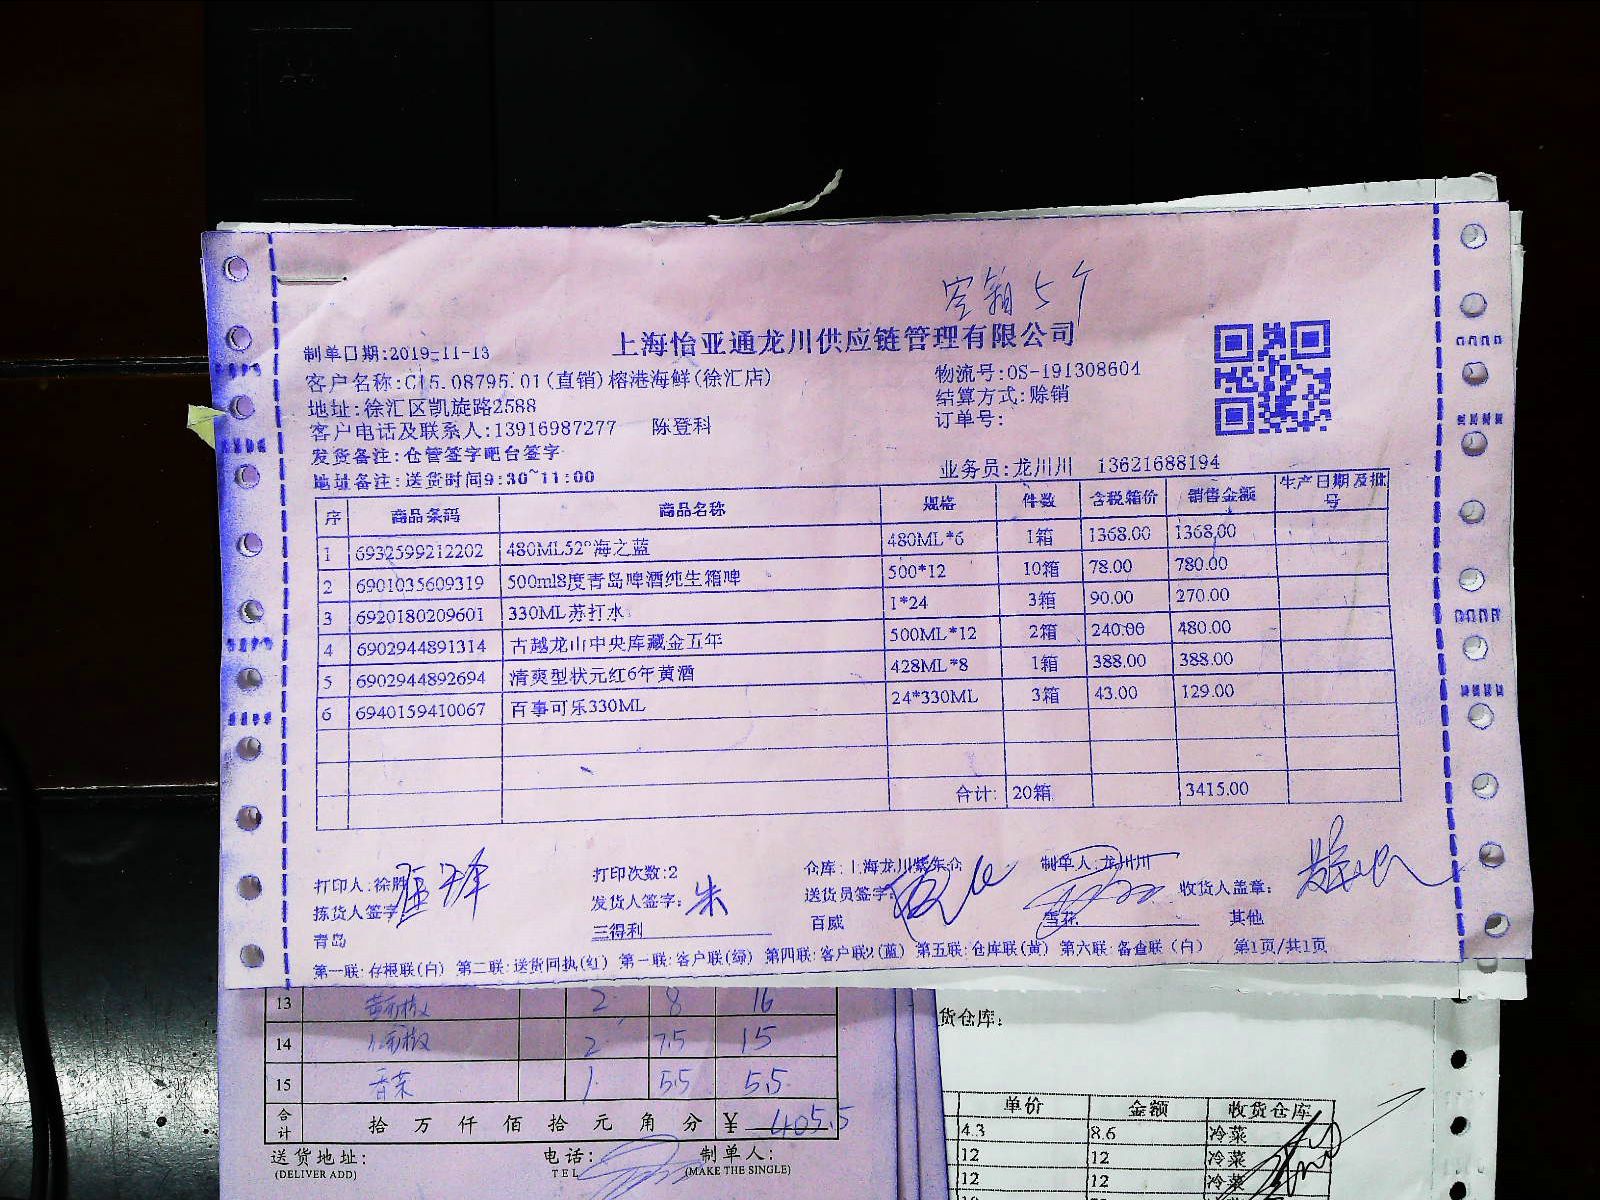 空箱5个
上海怡亚通龙川供应链管理有限公司
制单日期:2019-11-13
客户名称:C15.08795.01(直销)榕港海鲜(徐汇店)
物流号:OS-191308604
地址:徐汇区凯旋路2588
结算方式:赊销
客户电话及联系人:13916987277 陈登科
订单号:
发货备注:仓管签字吧台签字
业务员:龙川川 13621688194
地址备注:送货时间9:30~11:00
序 商品条码 商品名称 规格 件数 含税箱价 销售金额 生产日期及批号
1 6932599212202 480ML52°海之蓝 480ML*6 1箱 1368.00 1368.00
2 6901035609319 500ml8度青岛啤酒纯生箱啤 500*12 10箱 78.00 780.00
3 6920180209601 330ML苏打水 1*24 3箱 90.00 270.00
4 6902944891314 古越龙山中央库藏金五年 500ML*12 2箱 240.00 480.00
5 6902944892694 清爽型状元红6年黄酒 428ML*8 1箱 388.00 388.00
6 6940159410067 百事可乐330ML 24*330ML 3箱 43.00 129.00
合计: 20箱 3415.00
打印人:徐 打印次数:2 仓库:上海龙川 仓 制单人:龙川川
拣货人签字 发货人签字: 朱 送货员签字: 收货人盖章:
青岛 三得利 百威 雪花 其他
第一联:存根联(白) 第二联:送货回执(红) 第一联:客户联(绿) 第四联:客户联2(蓝) 第五联:仓库联(黄) 第六联:备查联(白) 第1页/共1页
13 2 8 16
14 2 7.5 15
15 香菜 1 5.5 5.5
合计 拾 万 仟 佰 拾 元 角 分 ¥ 405.5
送货地址: 电话: 制单人:
(DELIVER ADD) TEL (MAKE THE SINGLE)
货仓库:
单价 金额 收货仓库
4.3 8.6 冷菜
12 12 冷菜
12 12 冷菜